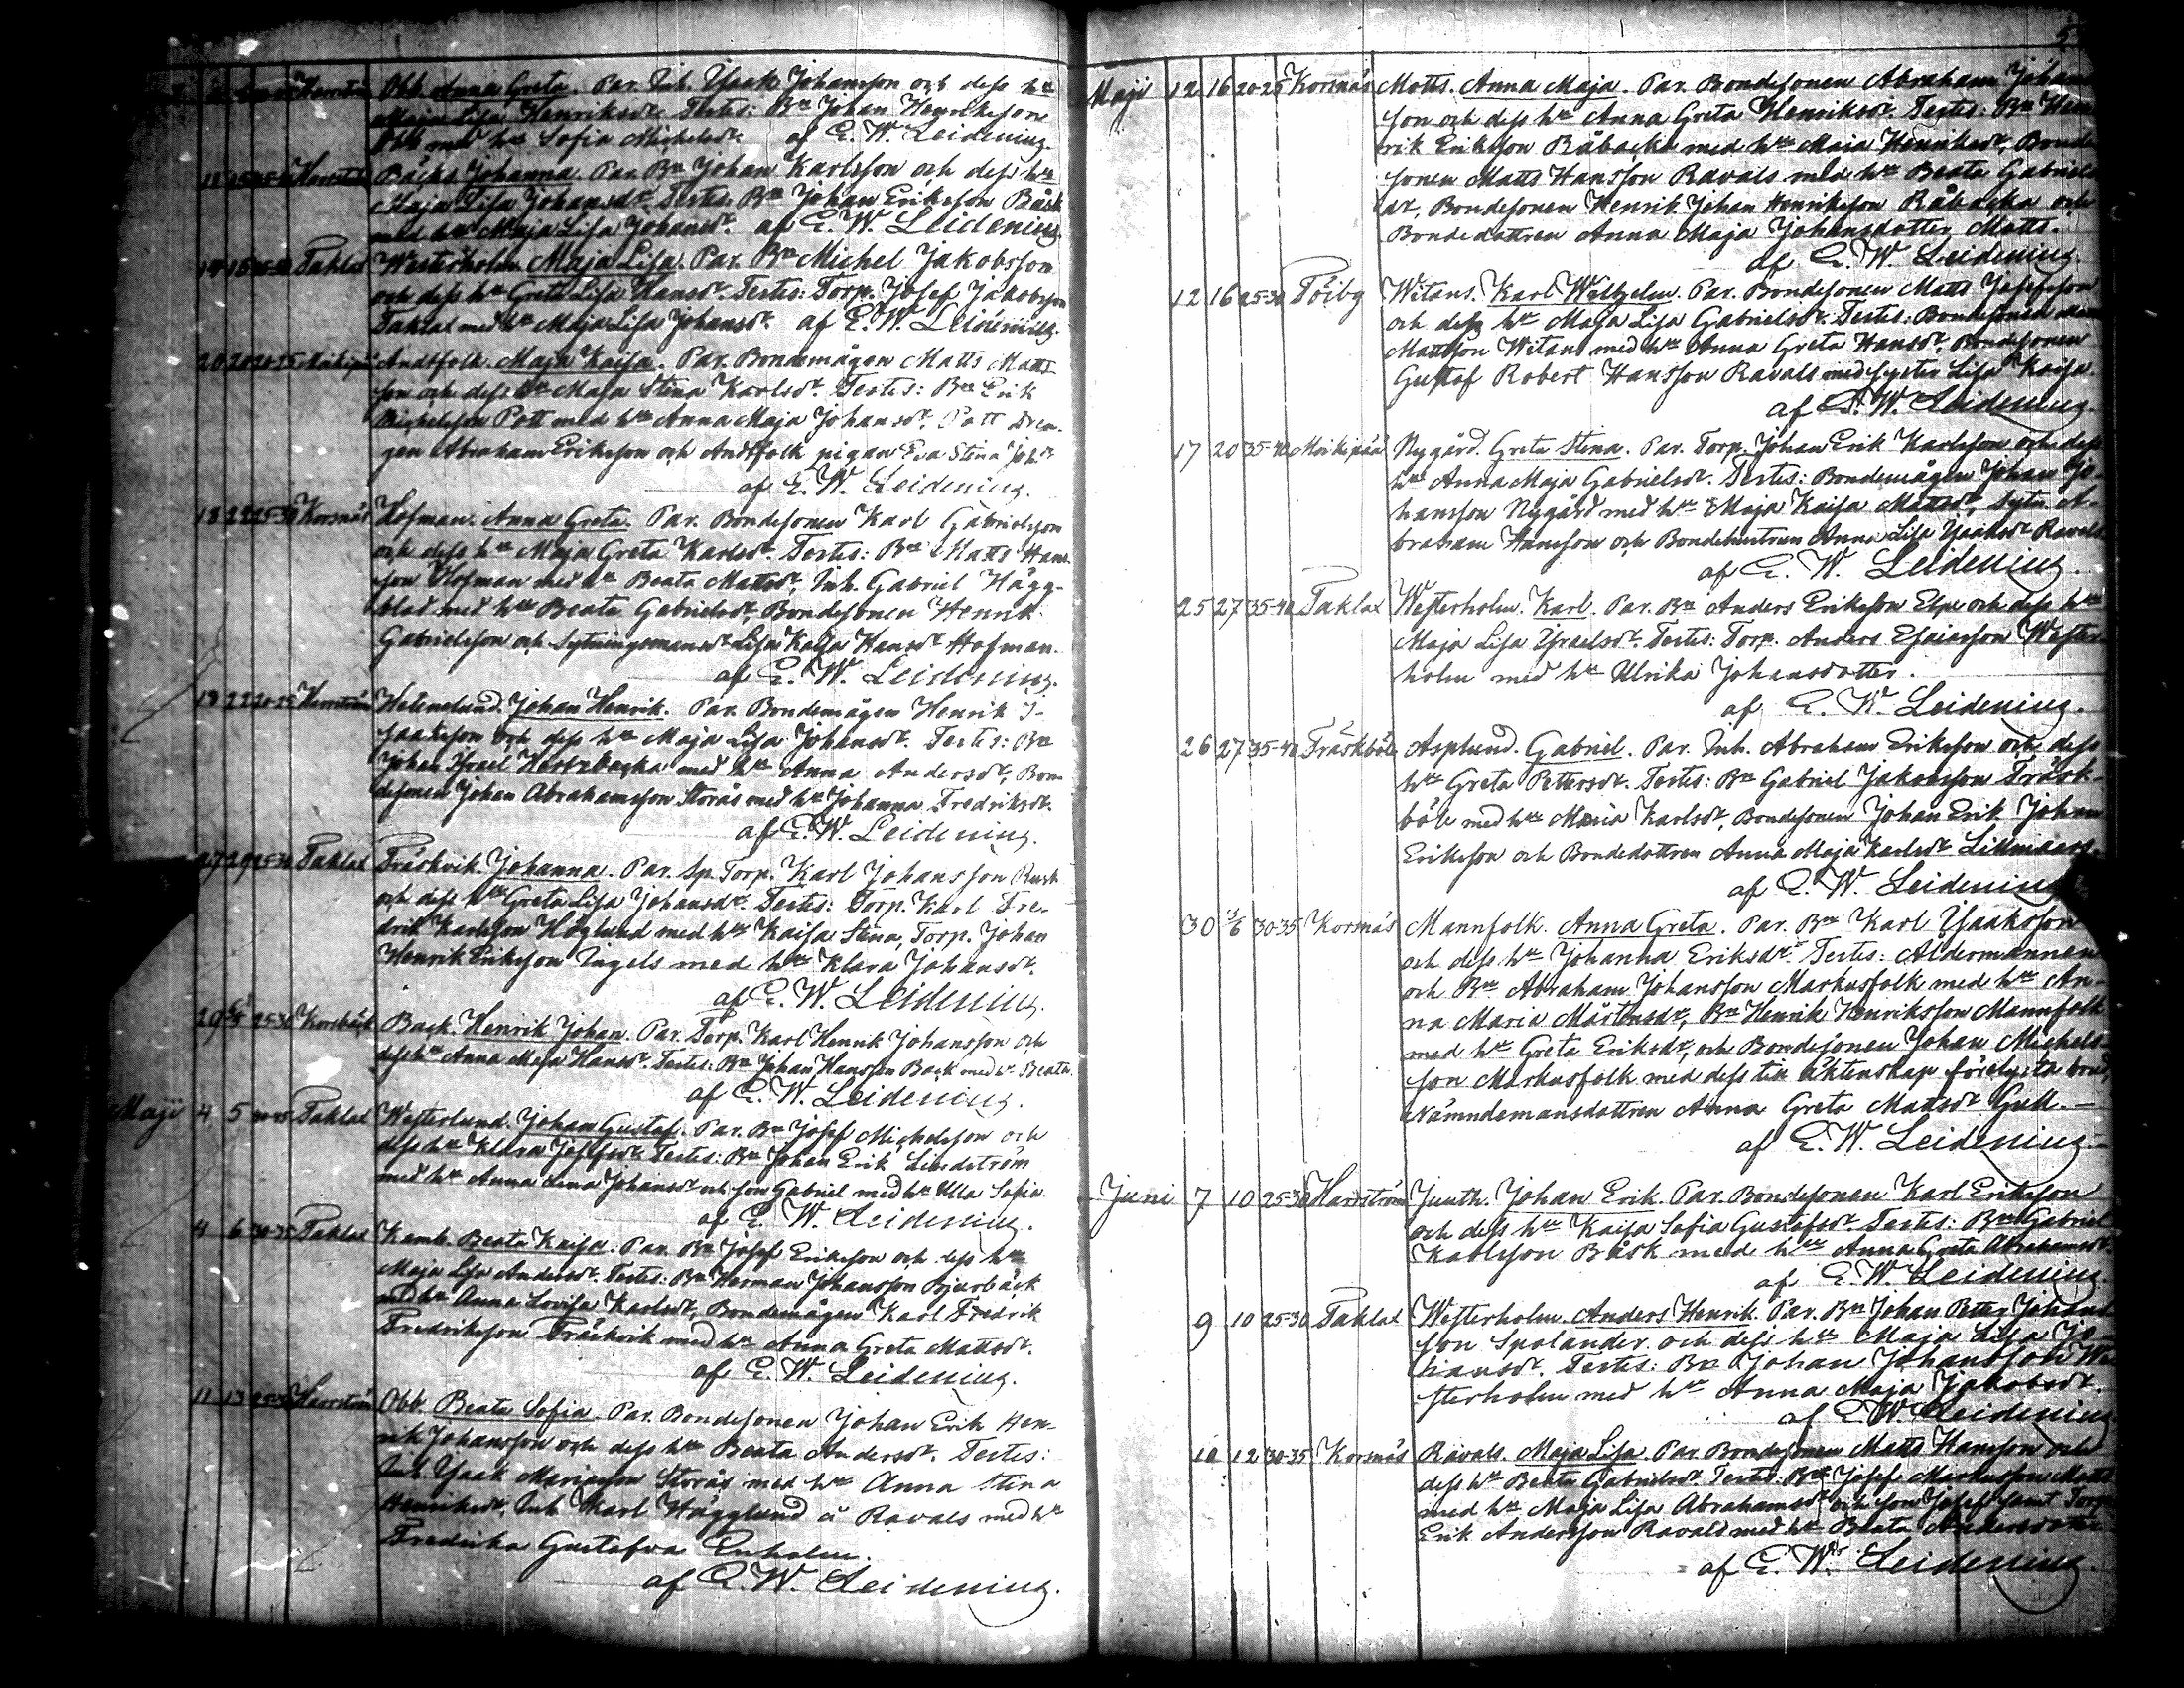 Harrström Obb. Anna Greta. Par. Inh. Isaak Johansson och dess hu
Maja Lisa Henriksdr. Testes: Bn Johan Henriksson
Obb med hu Sofia Michelsdr. af E. W. Leidenius.
Bäcks Johanna. Par. Bn Johan Karlsson och dess hu
Maja Lisa Johansdr. Testes: Bn Johan Eriksson Båsk
med hu Maja Lisa Johansdr. af E. W. Leidenius.
Taklax Westerholm. Maja Lisa. Par. Bn Michel Jakobsson
och dess hu Greta Lisa Hansdr. Testes: Torp. Josef Jakobsson
Taklax med hu Maja Lisa Johansdr. af E. W. Leidenius.
20 20 20-25 Andtfolk. Maja Kaisa. Par. Bondemågen Matts Matts-
son och dess hu Maja Stina Karlsdr. Testes: Bn Erik
Michelsson Pott med hu Anna Maja Johansdr. Pott Dren-
gen Abraham Eriksson och Andtfolk pigan Eva Stina Johdr
af E. W. Leidenius.
18 22 25-30 Korsnäs Hofman. Anna Greta. Par. Bondesonen Karl Gabrielsson
och dess hu Maja Greta Karlsdr. Testes: Bn Matts Hans-
son Hofman med hu Beata Mattsdr, Inh. Gabriel Hägg-
blad med hu Beata Gabrielsdr, Bondesonen Henrik
Gabrielsson och Sytningsmansdr Lisa Kajsa Hansdr Hofman.
af E. W. Leidenius.
18 22 Harrström Helenelund. Johan Henrik. Par. Bondemågen Henrik I-
saaksson och dess hu Maja Lisa Johansdr. Testes: Bn
Johan Israel med hu Anna Andersdr, Bon-
desonen Johan Abrahamsson Storås med hu Johanna Fredriksdr.
af E. W. Leidenius.
27 29 25-30 Taklax Träskvik. Johanna. Par. Sp. Torp. Karl Johansson
och dess hu Greta Lisa Johansdr. Testes: Torp. Karl Fre-
drik Karlsson Höglund med hu Kaisa Stina, Torp. Johan
Henrik Eriksson Ingels med hu Klara Johansdr.
af E. W. Leidenius.
29 25-30 Korsbäck Back. Henrik Johan. Par. Torp. Karl Henrik Johansson och
dess hu Anna Maja Hansdr. Testes: Bn Johan Hansson Back med hu Beata.
af E. W. Leidenius.
Maji 4 5 Taklax Westerlund. Johan Gustaf. Par. Bn Josef Michelsson och
dess hu Klara Josefsdr. Testes: Bn Johan Erik Lindström
med hu Anna Lena Johansdr och son Gabriel med hu Ulla Sofia.
af E. W. Leidenius.
4 6 30-35 Taklax Kamb. Beata Kaisa. Par. Bn Josef Eriksson och dess hu
Maja Lisa Andersdr. Testes: Bn Herman Johansson Bjurbäck
med hu Anna Lovisa Karlsdr, Bondemågen Karl Fredrik
Fredriksson Träskvik med hu Anna Greta Mattsdr.
af E. W. Leidenius.
11 13 25-30 Harrström Obb. Beata Sofia. Par. Bondesonen Johan Erik Hen-
rik Johansson och dess hu Beata Andersdr. Testes:
Inh Isaak Storås med hu Anna Stina
Henriksdr, Inh Karl Hägglund å Ravals med hu
Fredrika Gustafva Enholm.
af E. W. Leidenius.
Maji 12 16 20-25 Korsnäs Matts. Anna Maja. Par. Bondesonen Abraham Johans-
son och dess hu Anna Greta Henriksdr. Testes: Bn Hen-
rik Eriksson Råbacka med hu Maja Henriksdr, Bonde-
sonen Matts Hansson Ravals med hu Beata Gabriels-
dr, Bondesonen Henrik Johan Henriksson Råbacka och
Bondedottren Anna Maja Johansdotter Matts.
af E. W. Leidenius.
12 16 25-30 Töiby Witans. Karl Wilhelm. Par. Bondesonen Matts Josefsson
och dess hu Maja Lisa Gabrielsdr. Testes: Bondesonen
Mattsson Witans med hu Anna Greta Hansdr, Bondesonen
Gustaf Robert Hansson Ravals med syster Lisa Kaisa.
af E. W. Leidenius.
17 20 35-40 Moikipää Nygård. Greta Stina. Par. Torp. Johan Erik Karlsson och dess
hu Anna Maja Gabrielsdr. Testes: Bondemågen Johan Jo-
hansson Nygård med hu Maja Kaisa Mattsdr, Sytn. A-
braham Hansson och Bondehustrun Anna Lisa Isaksdr Ravals.
af E. W. Leidenius.
25 27 35-40 Taklax Westerholm. Karl. Par. Bn Anders Eriksson Elpe och dess hu
Maja Lisa Israelsdr. Testes: Torp. Anders Esaiasson Wester-
holm med hu Ulrika Johansdotter.
af E. W. Leidenius.
26 27 35-40 Träskböle Asplund. Gabriel. Par. Inh. Abraham Eriksson och dess
hu Greta Pettersdr. Testes: Bn Gabriel Jakobsson Träsk-
böle med hu Maria Karlsdr, Bondesonen Johan Erik Johan
Eriksson och Bondedottren Anna Maja Karlsdr
af E. W. Leidenius
30 1/6 30-35 Korsnäs Mannfolk. Anna Greta. Par. Bn Karl Isaaksson
och dess hu Johanna Eriksdr. Testes: Åldermannen
och Bn Abraham Johansson Markusfolk med hu An-
na Maria Mårtensdr, Bn Henrik Henriksson Mannfolk
med hu Greta Eriksdr, och Bondesonen Johan Michels-
son Markusfolk med dess till äktenskap förelysta brud,
Nämndemansdottren Anna Greta Mattsdr Gull.
af E. W. Leidenius.
Juni 7 10 25-30 Harrström Juuth. Johan Erik. Par. Bondesonen Karl Eriksson
och dess hu Kaisa Sofia Gustafsdr. Testes: Bn Gabriel
Karlsson Båsk med hu Anna Greta Abrahamsdr.
af E. W. Leidenius.
9 10 25-30 Taklax Westerholm. Anders Henrik. Par. Bn Johan Petter Johans-
son Spolander och dess hu Maja Lisa Jo-
hansdr. Testes: Bn Johan Johansson We-
sterholm med hu Anna Maja Jakobsdr.
af E. W. Leidenius
10 12 30-35 Korsnäs Ravals. Maja Lisa. Par. Bondesonen Matts Hansson och
dess hu Beata Gabrielsdr. Testes: Bn Josef Markusson Matts
med hu Maja Lisa Abrahamsdr och son Josef samt Torp.
Erik Andersson Ravals med hu Beata Andersdotter
af E. W. Leidenius.